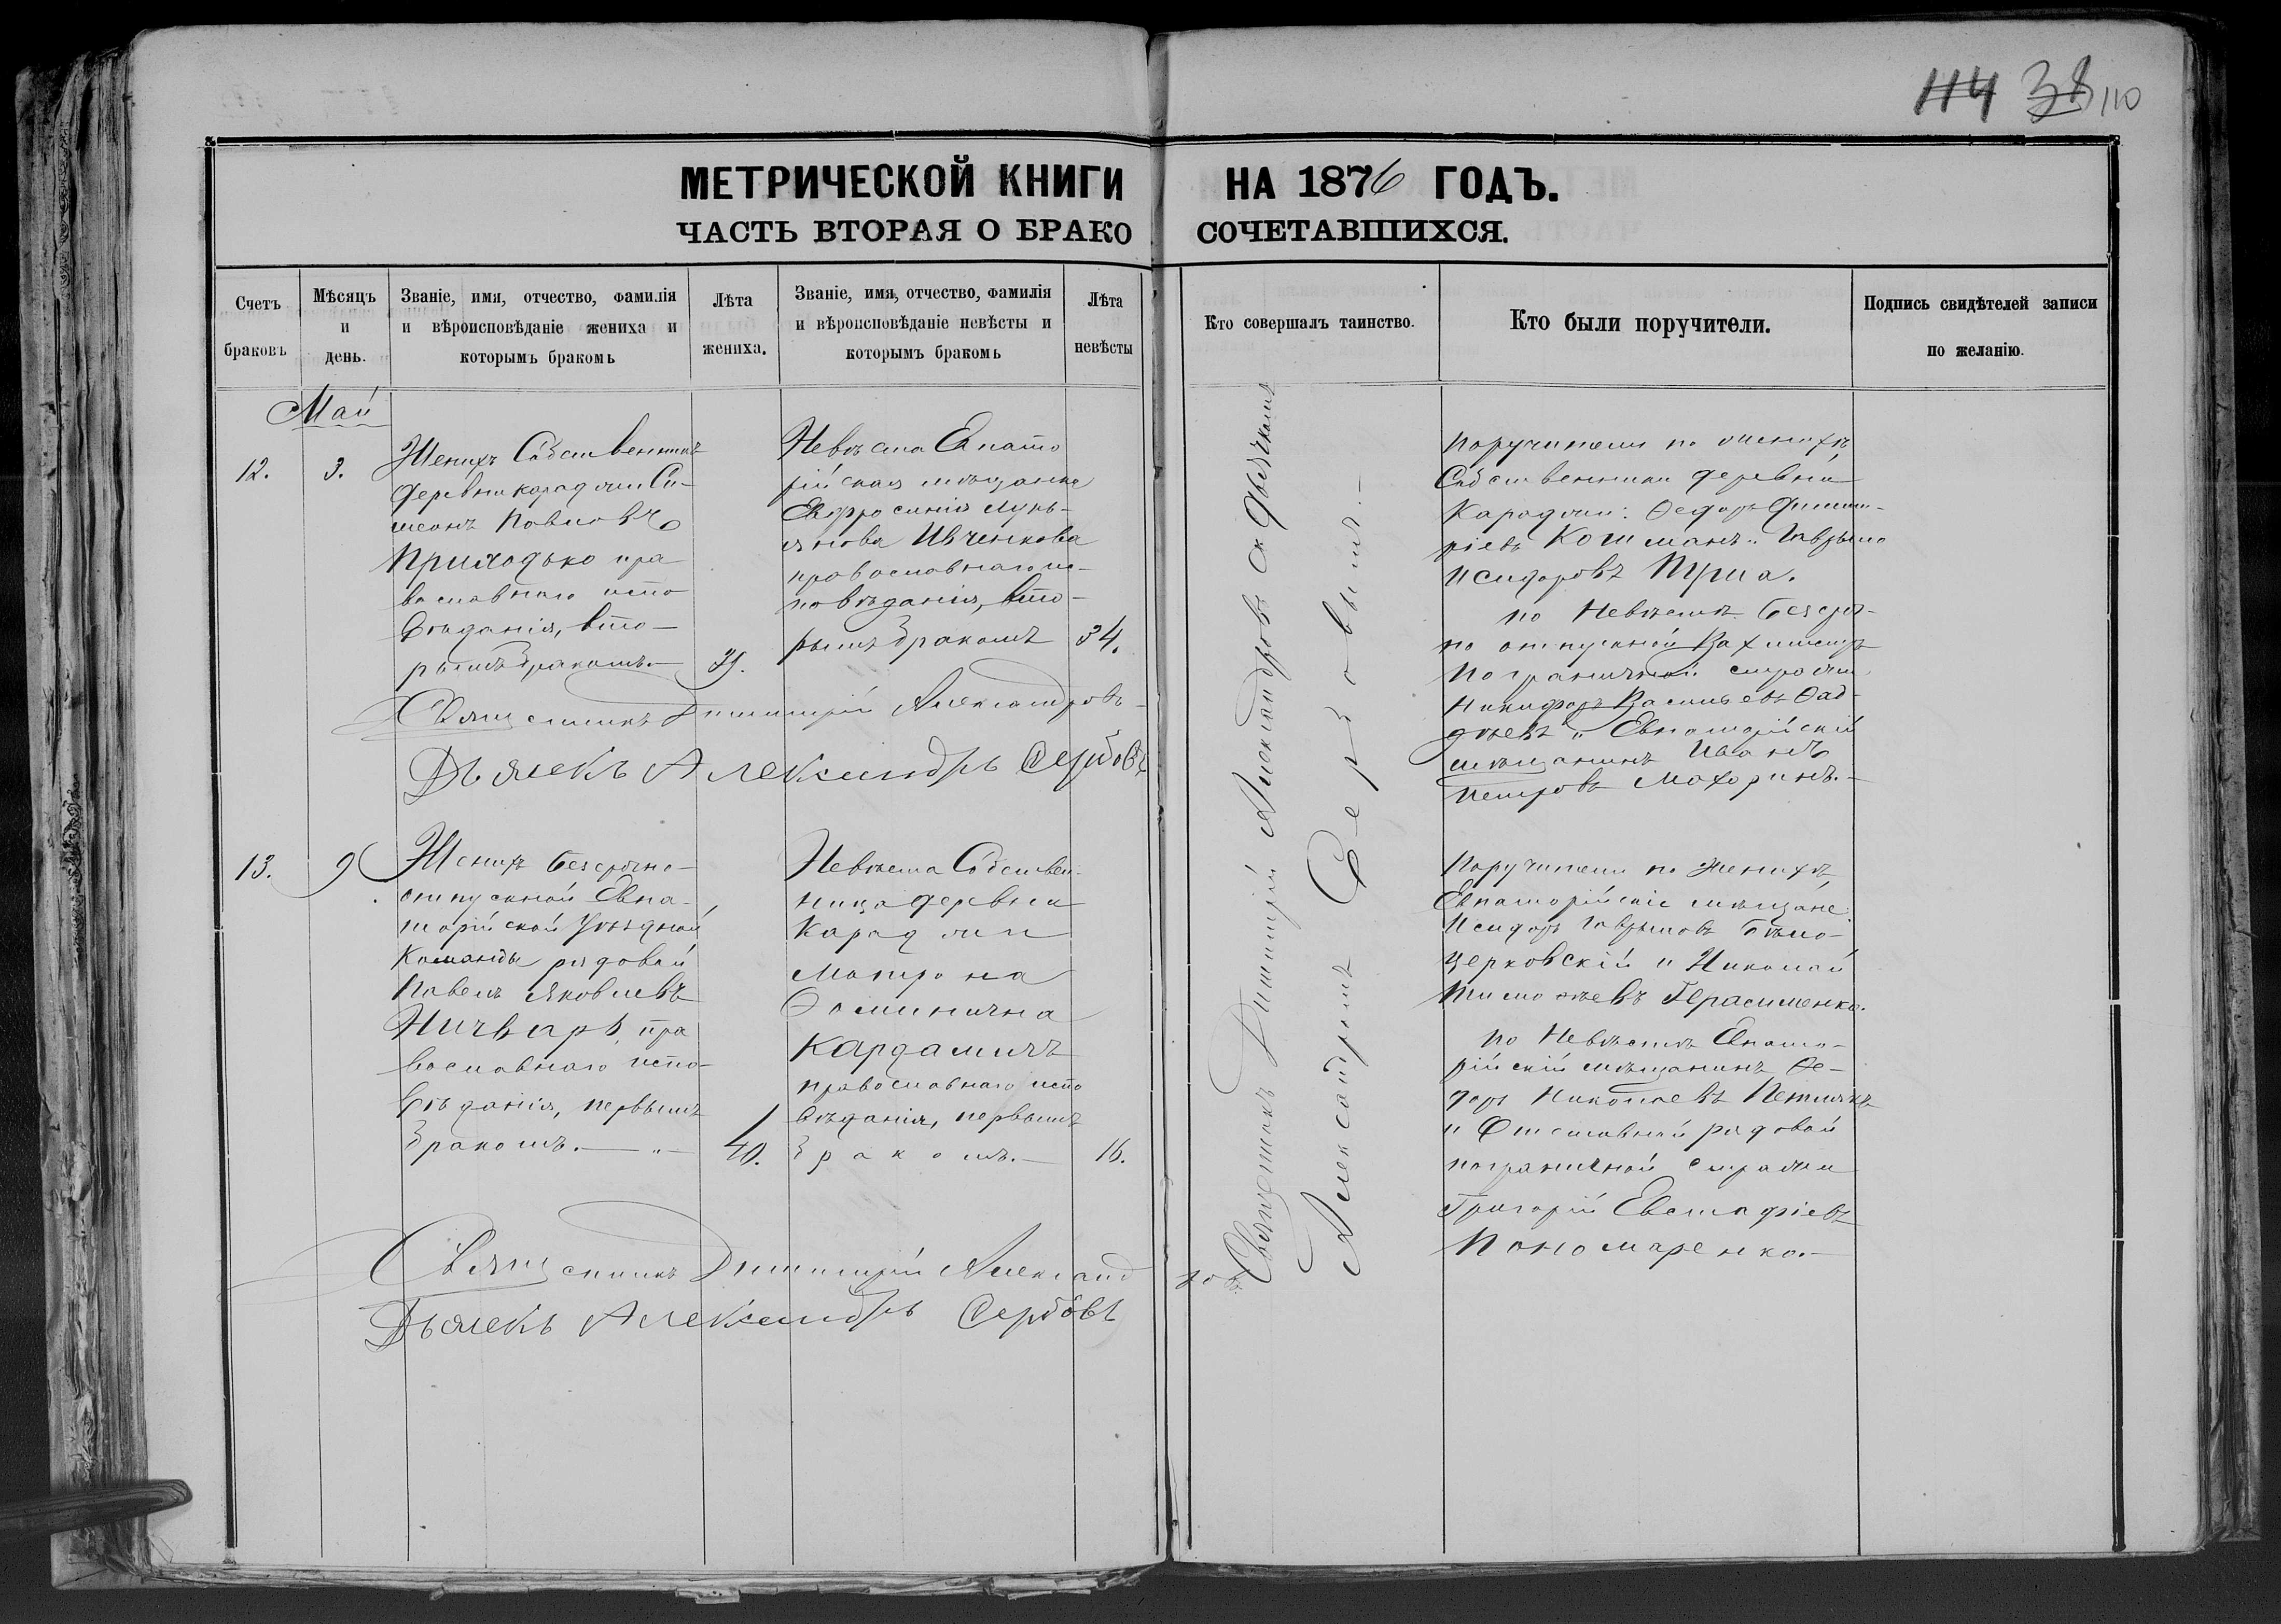 114 38 110
МЕТРИЧЕСКОЙ КНИГИ НА 1876 ГОДЪ.
ЧАСТЬ ВТОРАЯ О БРАКОСОЧЕТАВШИХСЯ.
Счетъ браковъ
Мѣсяцъ и день.
Званіе, имя, отчество, фамилія
и вѣроисповѣданіе жениха и
которымъ бракомъ
Лѣта жениха.
Званіе, имя, отчество, фамилія
и вѣроисповѣданіе невѣсты и
которымъ бракомъ
Лѣта невѣсты
Кто совершалъ таинство.
Кто были поручители.
Подпись свидѣтелей записи
по желанію.
Май
12. 3.
Женихъ Собственникъ
деревни Караджи Си-
меонъ Павловъ
Приходько пра
вославнаго испо
вѣданія, вто-
рымъ бракомъ.—
39.
Невѣста Евпато
рійская мѣщанка
Евфросинія Лукь-
янова Ивченкова
православнаго ис-
повѣданія, вто-
рымъ бракомъ
34.
Священникъ Димитрій Александровъ
Дьячекъ Александръ Сербовъ
Поручители по женихѣ
Собственники деревни
Караджи: Ѳедоръ Димит-
ріевъ Кошманъ и Гаврыло
Исидоровъ Пуша.
По Невѣстѣ безсро-
но отпускной Вахмистръ
Пограничной стражи
Никифоръ Васильевъ Фад-
дѣевъ и Евпаторійскій
мѣщанинъ Иванъ
Петровъ Махоринъ.—
13. 9.
Женихъ безсрочно-
отпускной Евпа-
торійской Уѣздной
Команды рядовой
Павелъ Яковлевъ
Ничварь, пра
вославнаго испо-
вѣданія, первымъ
бракомъ.—
40.
Невѣста Собствен-
ница деревни
Караджи
Матрона
Ѳоминична
Кардамичъ
православнаго испо
вѣданія, первымъ
бракомъ.—
16.
Священникъ Димитрій Александровъ
Дьячекъ Александръ Сербовъ
Поручители по Женихѣ,
Евпаторійскіе мѣщане:
Исидоръ Гаврыловъ Бѣло-
церковскій и Николай
Тимоѳѣевъ Герасименко.
По Невѣстѣ Евпато-
рійскій мѣщанинъ Ѳе-
доръ Николаевъ
и Отставной рядовой
пограничной стражи
Григорій Евстафіевъ
Пономаренко.—
Священникъ Димитрій Александровъ съ Дьячкомъ
Александромъ Сербовымъ.—